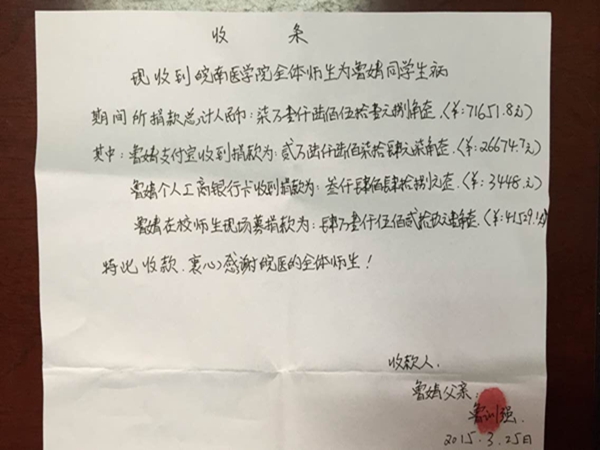 收 条
现收到皖南医学院全体师生为鲁嫱同学生病
期间所捐款总计人民币:柒万壹仟陆佰伍拾壹元捌角整.(¥:71651.8元)
其中:鲁嫱支付宝收到捐款为:贰万陆仟陆佰柒拾肆元柒角整.(¥:26674.7元)
鲁嫱个人工商银行卡收到捐款为:叁仟肆佰肆拾捌元整.(¥:3448.元)
鲁嫱在校师生现场募捐款为:肆万壹仟伍佰贰拾玖元壹角整.(¥:41529.1元)
特此收款.衷心感谢皖医的全体师生!
收款人.
鲁嫱父亲:
鲁训强.
2015.3.25日